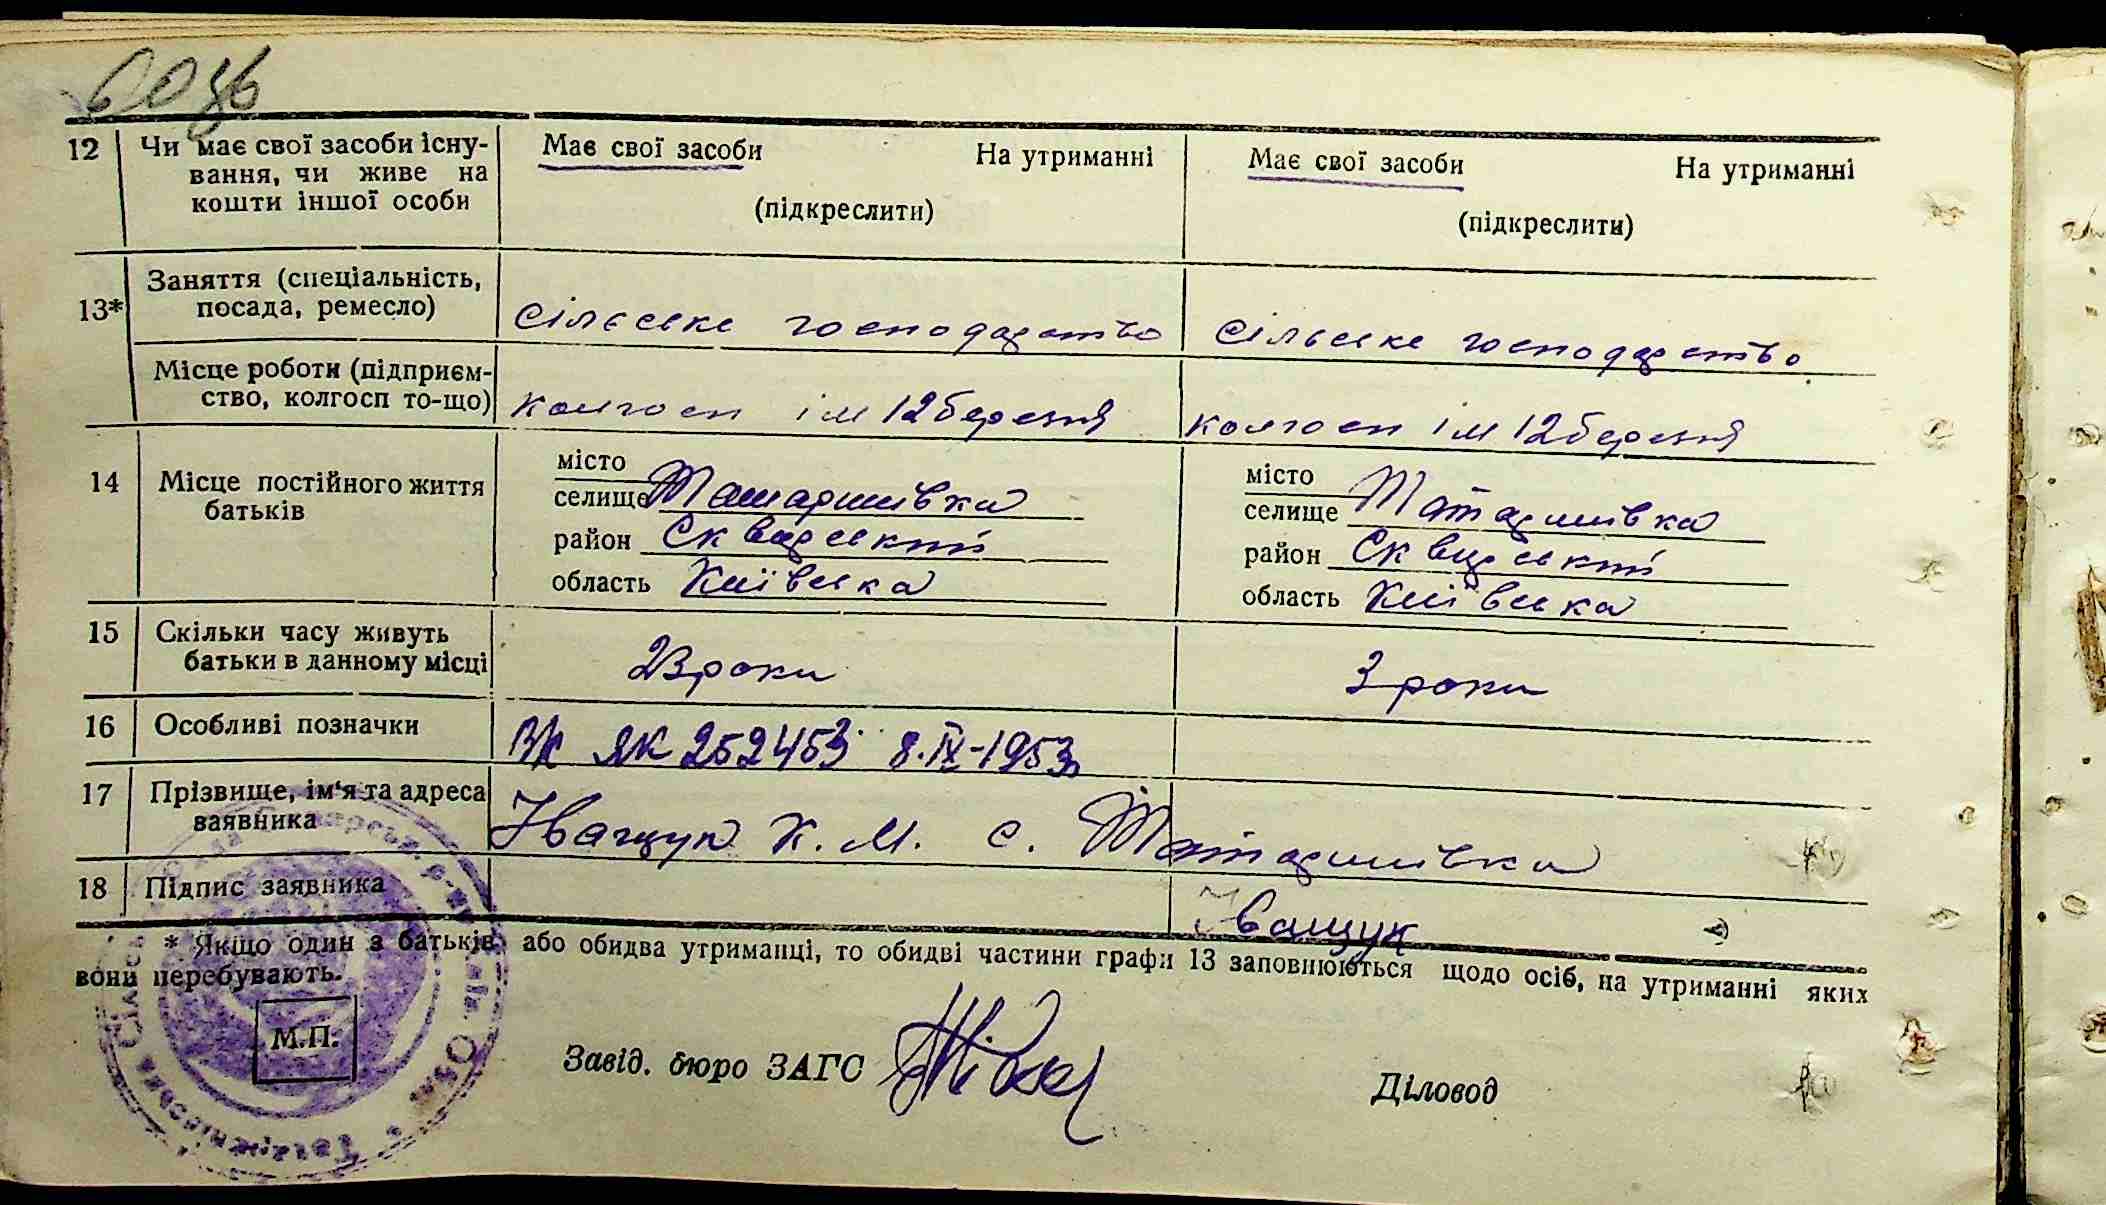 12 Чи має свої засоби існу- Має свої засоби На утриманні Має свої засоби На утриманні
вання, чи живе на
кошти іншої особи (підкреслити) (підкреслити)
13* Заняття (спеціальність,
посада, ремесло) сільське господарство сільське господарство
Місце роботи (підприєм-
ство, колгосп то-що) колгосп ім 12 березня колгосп ім 12 березня
14 Місце постійного життя
батьків
місто місто
селище Татаршівка селище Татаршівка
район Сквирський район Сквирський
область Київська область Київська
15 Скільки часу живуть
батьки в данному місці 23 роки 3 роки
16 Особливі позначки ЯК 252453 8.IX-1953
17 Прізвище, ім'я та адреса
заявника Іващук К. М. с. Татаршівка
18 Підпис заявника Іващук
* Якщо один з батьків, або обидва утриманці, то обидві частини графи 13 заповнюються щодо осіб, на утриманні яких
вони перебувають.
М.П.
Завід. бюро ЗАГС Діловод